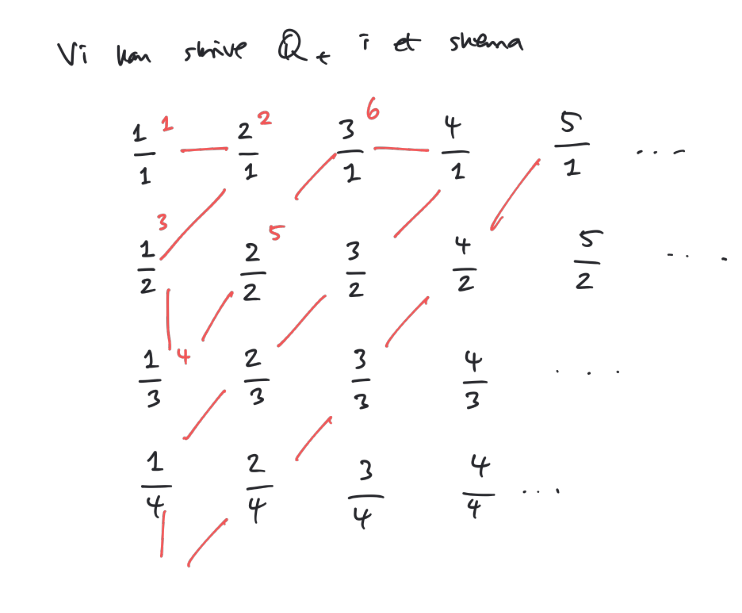 Vi kan skrive ℚ₊ i et skema
1/1 1 2/1 2 3/1 6 4/1 5/1 ...
1/2 3 2/2 5 3/2 4/2 5/2 ...
1/3 4 2/3 3/3 4/3 ...
1/4 2/4 3/4 4/4 ...